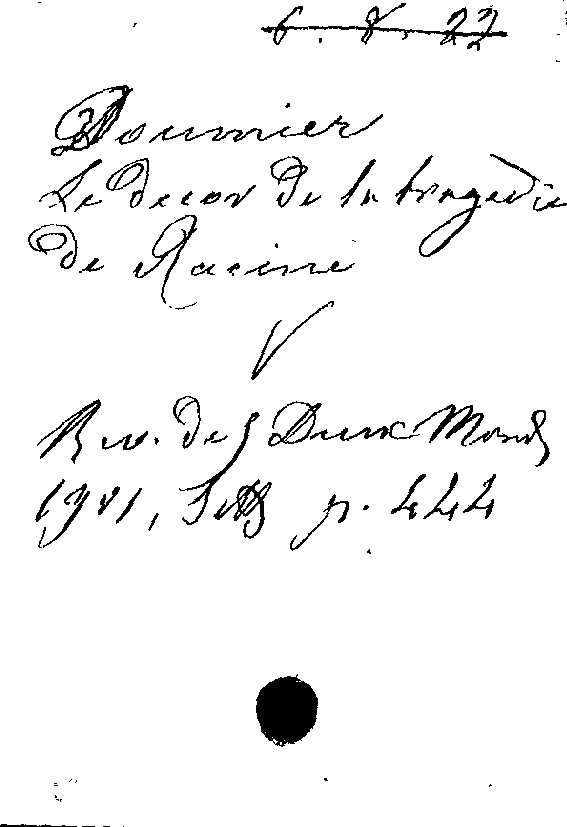 6. 8. 22
Doumier
Le decor de la tragedie
de Racine
V
Rev. des Deux Monds
1901, p. 444